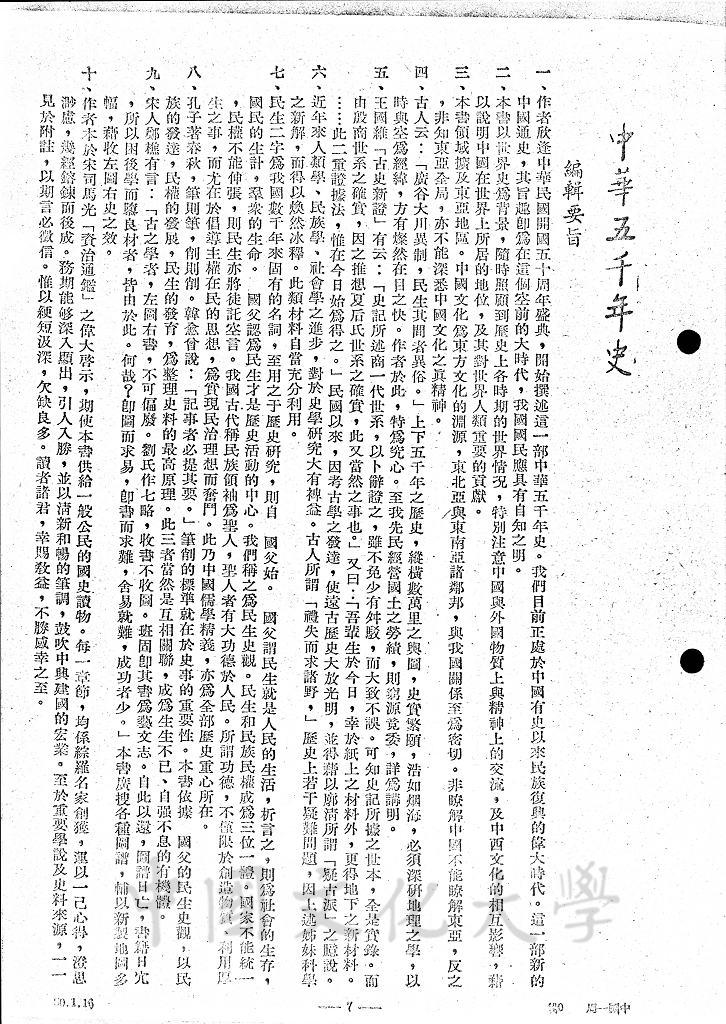 中華五千年史
編輯要旨
一、作者欣逢中華民國開國五十周年盛典，開始撰述這一部中華五千年史。我們目前正處於中國有史以來民族復興的偉大時代。這一部新的
中國通史，其旨趣卽爲在這個空前的大時代，我國國民應具有自知之明。
二、本書以世界史爲背景，隨時照顧到歷史上各時期的世界情況，特別注意中國與外國物質上與精神上的交流，及中西文化的相互影響，藉
以說明中國在世界上所居的地位，及其對世界人類重要的貢獻。
三、本書領域擴及東亞地區。中國文化爲東方文化的淵源，東北亞與東南亞諸鄰邦，與我國關係至爲密切。非瞭解中國不能瞭解東亞，反之
，非知東亞全局，亦不能深悉中國文化之眞精神。
四、古人云：「廣谷大川異制，民生其間者異俗。」上下五千年之歷史，縱橫數萬里之輿圖，史實繁頤，浩如烟海，必須深研地理之學，以
時與空爲經緯，方有燦然在目之快。作者於此，特爲究心。至我先民經營國土之勞績，則窮源竟委，詳爲講明。
五、王國維「古史新證」有云：「史記所述商一代世系，以卜辭證之，雖不免少有舛駁，而大致不誤。可知史記所據之世本，全是實錄。而
由殷商世系之確實，因之推想夏后氏世系之確實，此又當然之事也。」又曰：「吾輩生於今日，幸於紙上之材料外，更得地下之新材料。
……此二重證據法，惟在今日始爲得之。」民國以來，因考古學之發達，使遠古歷史大放光明，並得藉以廓清所謂「疑古派」之臆說。
六、近年來人類學、民族學、社會學之進步，對於史學研究大有裨益。古人所謂「禮失而求諸野，」歷史上若干疑難問題，因上述姊妹科學
之新解，而得以煥然冰釋。此類材料自當充分利用。
七、民生二字爲我國數千年來固有的名詞，至用之于歷史研究，則自　國父始。　國父謂民生就是人民的生活，析言之，則爲社會的生存，
國民的生計，羣衆的生命。　國父認爲民生才是歷史活動的中心。我們稱之爲民生史觀。民生和民族民權成爲三位一體。國家不能統一
，民權不能伸張，則民生亦將徒託空言。我國古代稱民族領袖爲聖人，聖人者有大功德於人民。所謂功德，不僅限於創造物質、利用厚
生之事，而尤在於倡導主權在民的思想，爲實現民治理想而奮鬥。此乃中國儒學精義，亦爲全部歷史重心所在。
八、孔子著春秋，筆則筆，削則削。韓愈曾說：「記事者必提其要。」筆削的標準就在於史事的重要性。本書依據　國父的民生史觀，以民
族的發達，民權的發展，民生的發育，爲整理史料的最高原理。此三者當然是互相關聯，成爲生生不已、自强不息的有機體。
九、宋人鄭樵有言：「古之學者，左圖右書，不可偏廢。劉氏作七略，收書不收圖。班固卽其書爲藝文志。自此以還，圖譜日亡，書籍日冗
，所以困後學而隳良材者，皆由於此。何哉？卽圖而求易，卽書而求難，舍易就難，成功者少。」本書廣搜各種圖譜，輔以新製地圖多
幅，藉收左圖右史之效。
十、作者本於宋司馬光「資治通鑑」之偉大啓示，期使本書供給一般公民的國史讀物。每一章節，均係綜羅名家創獲，運以一己心得，澄思
渺慮，幾經鎔鍊而後成。務期能够深入顯出，引人入勝，並以清新和暢的筆調，鼓吹中興建國的宏業。至於重要學說及史料來源，一一
見於附註，以期言必徵信。惟以綆短汲深，欠缺良多。讀者諸君，幸賜敎益，不勝感幸之至。
中國文化大學
50.1.16
— 7 —
中國一周